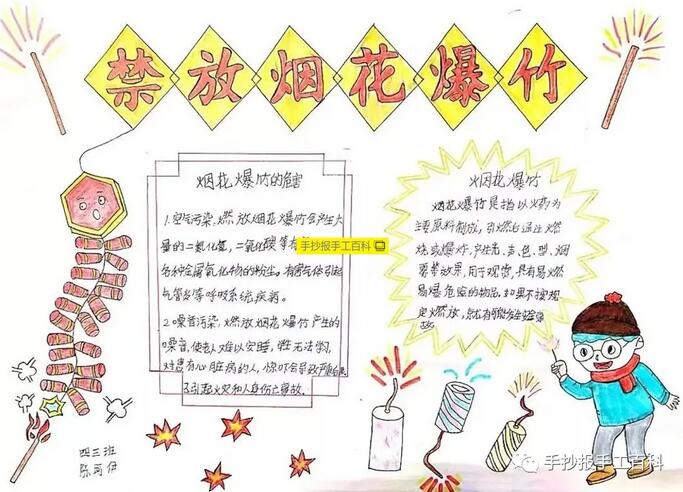 禁放烟花爆竹
烟花爆竹的危害
1.空气污染,燃放烟花爆竹会产生大
量的二氧化氮,二氧化
手抄报手工百科
各种金属氧化物的粉尘。有害气体引起
气管炎等呼吸系统疾病。
2.噪音污染,燃放烟花爆竹产生的
噪音,使人难以安睡,无法学习,
对患有心脏病的人,惊吓会导致严重后果
3.引起火灾和人身伤亡事故。
烟花爆竹
烟花爆竹是指以火药为
主要原料制成,引燃后通过燃
烧或爆炸,产生光、声、色、型、烟
雾等效果,用于观赏,具有易燃
易爆危险的物品。如果不按规
定燃放,就有可能发生
故
四三班
手抄报手工百科